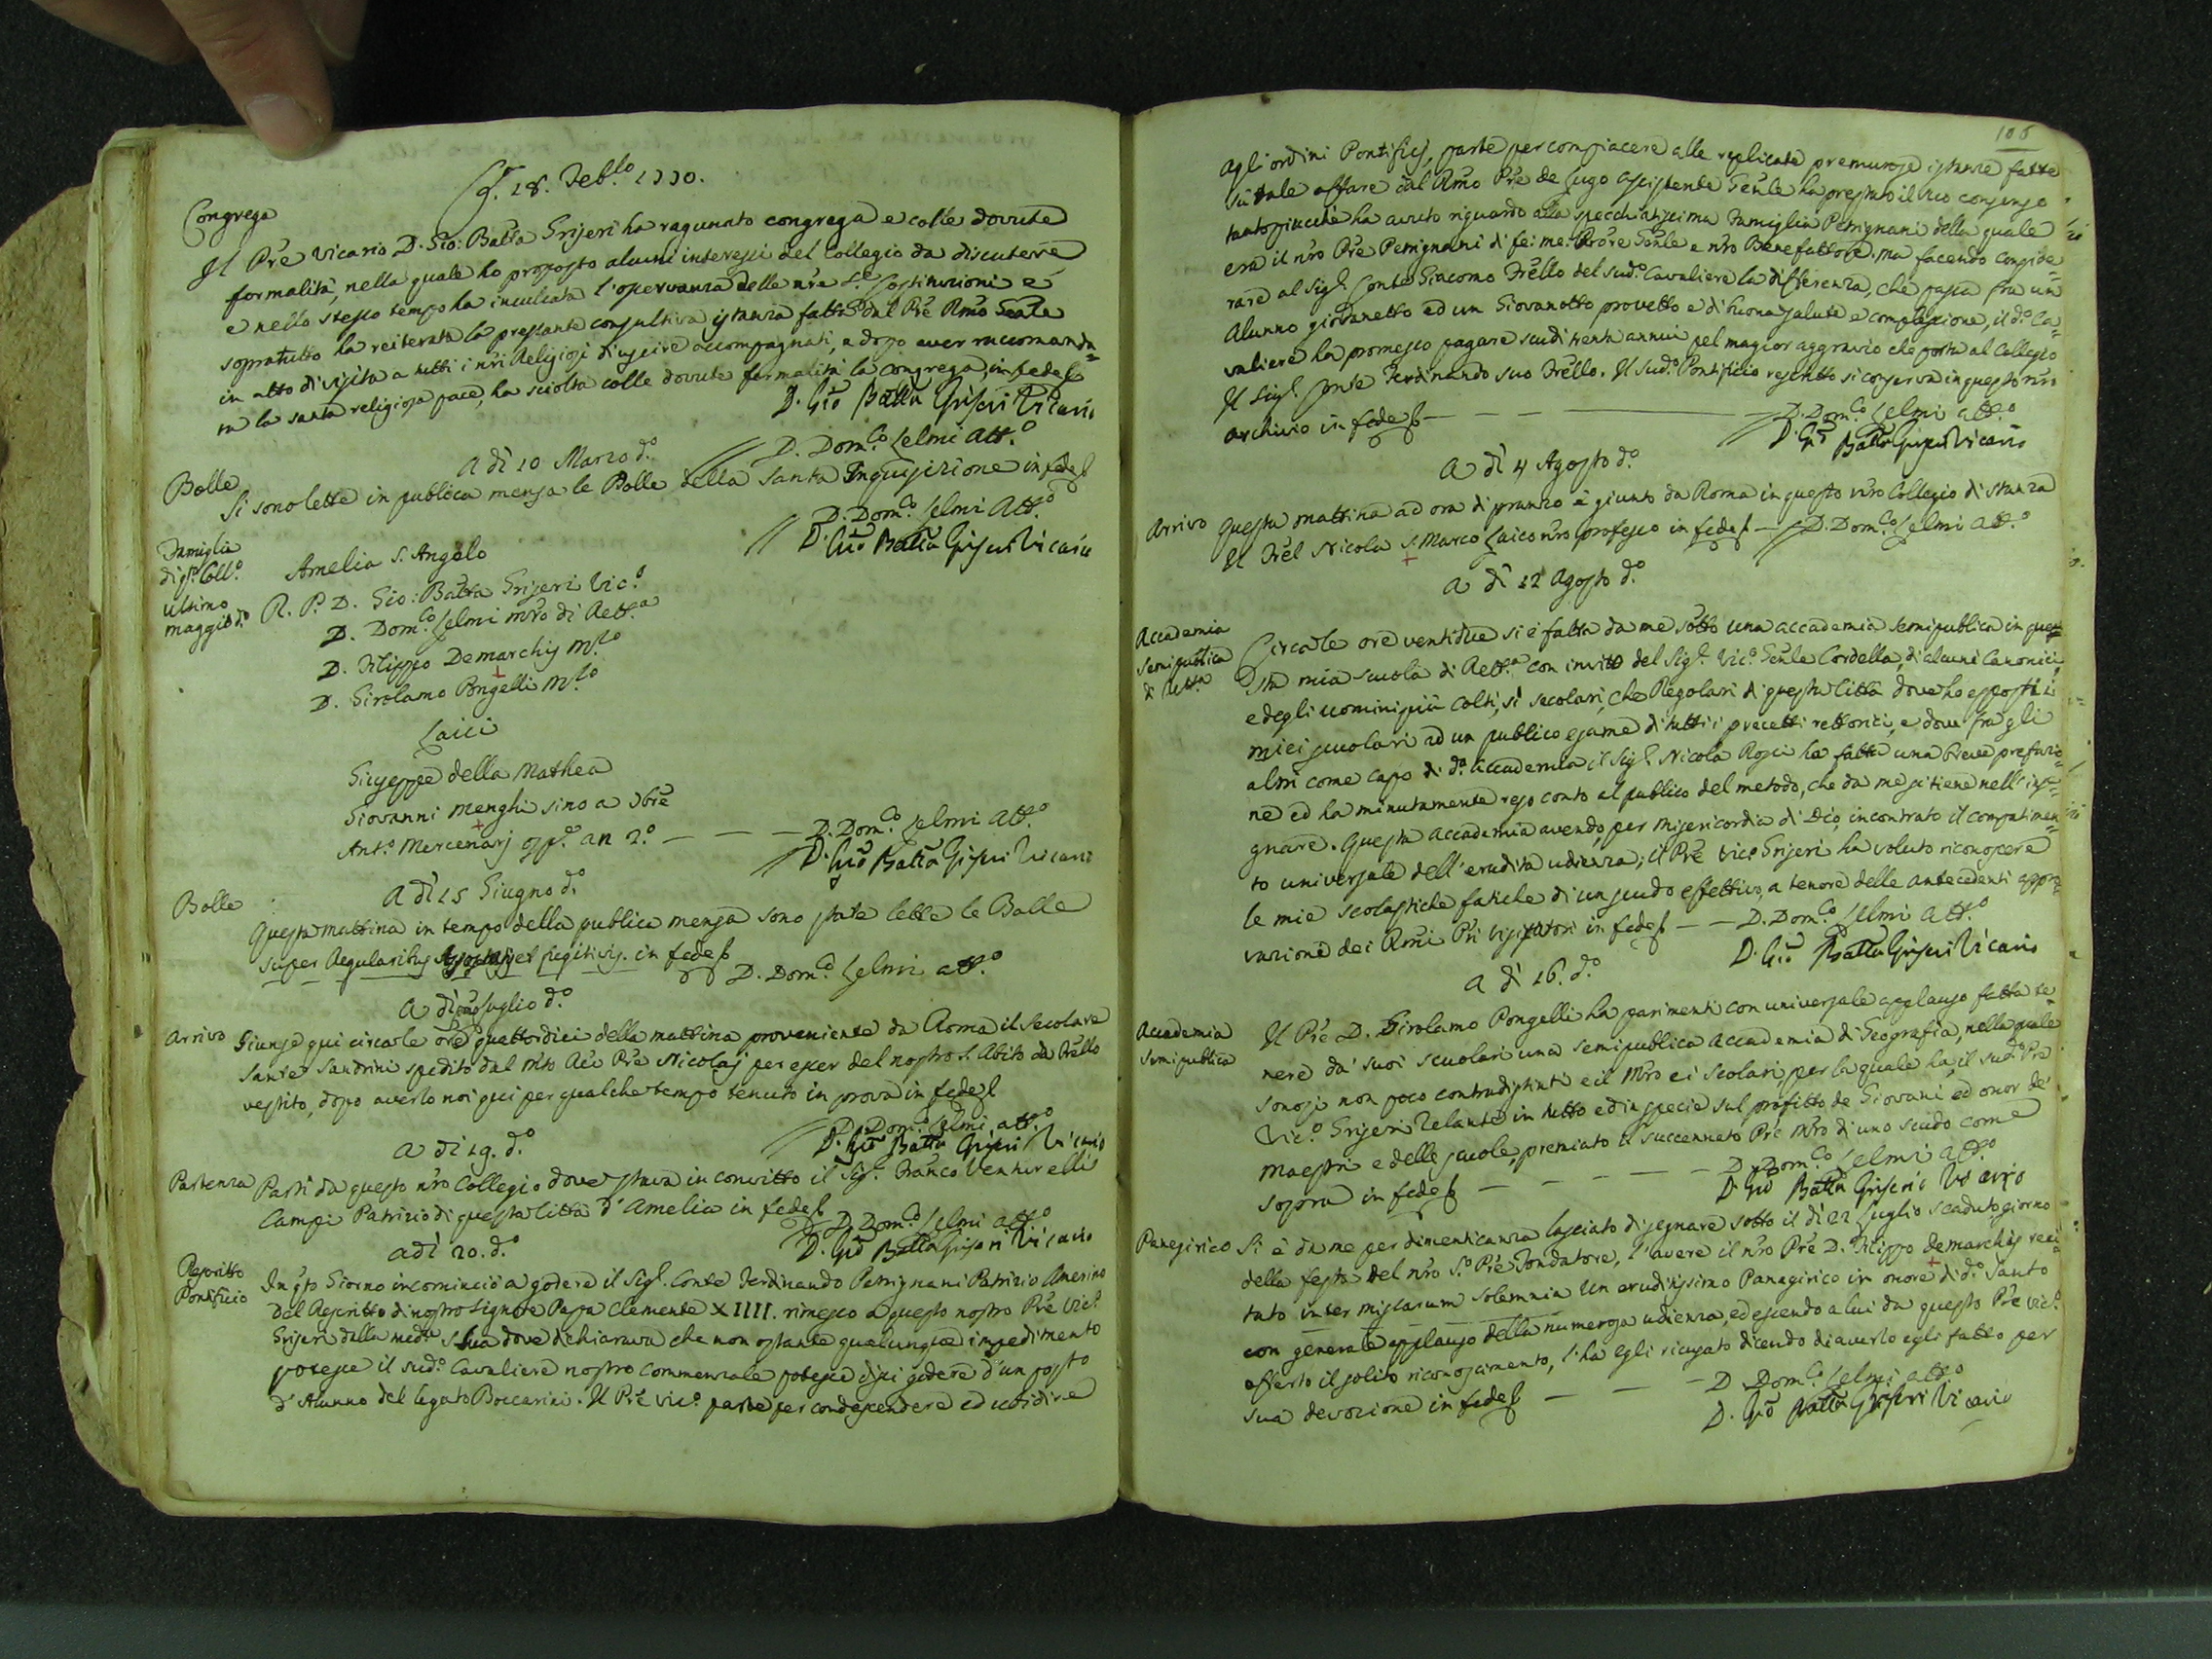 18. Feb.lo 1770.
Congrega
Il Prē Vicario D. Gio: Batta Griseri ha ragunato congrega e colle dovute
formalità, nella quale ho proposto alcuni interessi del Collegio da discutere
e nello stesso tempo ha inculcata l'osservanza delle nr̄e S. Costituzioni e
sopratutto ha reiterata la pressante consultiva istanza fatta dal Prē Rm̄o Gen̄le
in atto di visita a tutti i nr̄i Religiosi d'uscire accompagnati, e dopo aver raccomanda=
ta la santa religiosa pace, ha sciolta colle dovute formalità la congrega, in fede
D. Gio Batta Griseri Vicario
D. Dom.co Selmi Att.o
A dì 10 Marzo d.o
Bolle
Si sono lette in publica mensa le Bolle della Santa Inquisizione in fede
D. Dom.co Selmi Att.o
D. Gio Batta Griseri Vicario
Famiglia
di q.to Coll.o
ultimo
maggio d.o
Amelia S. Angelo
R. P. D. Gio: Batta Griseri Vic.o
D. Dom.co Selmi mr̄o di Rett.a
D. Filippo Demarchis M.ro
D. Girolamo Pongelli M.ro
Laici
Giuseppe della Mathea
Giovanni Menghi sino a 9bre
Ant.o Mercenarj osp.e an 2.o — — —
D. Dom.co Selmi Att.o
D. Gio Batta Griseri Vicario
A dì 15 Giugno d.o
Bolle
Questa mattina in tempo della publica mensa sono state lette le Bolle
super Regularibus Apostatis et fugitivis. in fede
D. Dom.co Selmi att.o
A dì Luglio d.o
Arrivo
Giunse qui circa le ore quattordici della mattina proveniente da Roma il secolare
Sante Sandrini spedito dal m'to Rēv Prē Nicolaj per esser del nostro S. Abito da Frello
vestito, dopo averlo noi qui per qualche tempo tenuto in prova in fede
D. Dom.co Selmi att.o
D. Gio Batta Griseri Vicario
A dì 19. d.o
Partenza
Partì da questo nr̄o Collegio dove stava in convitto il Sig.r Franco Venturelli
Campi Patrizio di questa Città d'Amelia in fede
D. Dom.co Selmi att.o
D. Gio Batta Griseri Vicario
adì 20. d.o
Rescritto
Pontificio
In q.to Giorno incominciò a godere il Sig.r Conte Ferdinando Petrignani Patrizio Amerino
Del Rescritto di nostro Signore Papa Clemente XIIII. rimesso a questo nostro Prē Vic.o
Griseri dalla med.a Sua dove dichiarava che non ostante qualunque impedimento
potesse il sud.o Cavaliere nostro Commensale potesse di qui godere d'un posto
d'Alunno del Legato Boccarini. Il Prē Vic.o parte per condescendere ed ubbidire
106
agli ordini Pontificj, parte per compiacere alle replicate premurose istanze fatte
su tale affare dal Rm̄o Prē de Lugo assistente Gen̄le ha prestato il suo consenso
tantopiucchè ha avuto riguardo alla specchiatissima Famiglia Petrignani della quale
era il nr̄o Prē Petrignani di fe: me: Pro're Gen̄le e nr̄o Benefattore. ma facendo conside=
rare al Sig.r Conte Giacomo Frello del sud.o Cavaliere la differenza, che passa fra un
Alunno giovanetto ed un Giovanotto provetto e di buona salute e complessione, il d.o Ca=
valiere ha promesso pagare scudi trenta annui pel magior aggravio che porta al Collegio
Il Sig.r Conte Ferdinando suo Frello. Il sud.o Pontificio rescritto si conserva in questo nr̄o
archivio in fede — — — —
D. Dom.co Selmi att.o
D. Gio Batta Griseri Vicario
A dì 4 Agosto d.o
Arrivo
Questa mattina ad ora di pranzo è giunto da Roma in questo nr̄o Collegio di stanza
Il Frēl Nicola S. Marco Laico nr̄o professo in fede — D. Dom.co Selmi att.o
A dì 12 Agosto d.o
Accademia
Semipublica
di Rett.a
Circa le ore ventidue si è fatta da me sotto una accademia semipublica in ques=
ta mia scuola di Rett.a con invito del Sig.r Vic.o Gen̄le Cordella, di alcuni Canonici,
e degli uomini più colti, sì secolari, che Regolari di questa Città dove ho esposti i
miei scuolari ad un publico esame di tutti i precetti rettorici, e dove fra gli
altri come capo di d.a Accademia il Sig.r Nicola Rosa ha fatta una breve prefazio=
ne ed ha minutamente reso conto al publico del metodo, che da me si tiene nell'inse=
gnare. Questa accademia avendo, per misericordia di Dio, incontrato il compatimen=
to universale dell'erudita udienza; il Prē Vic.o Griseri ha voluto riconoscere
le mie scolastiche fatiche di un scudo effettivo, a tenore delle antecedenti appro=
vazione dei Rm̄i Pr̄i Visitatori in fede — — D. Dom.co Selmi att.o
D. Gio Batta Griseri Vicario
A dì 16. d.o
Accademia
Semipublica
Il Prē D. Girolamo Pongelli ha parimenti con universale applauso fatta te=
nere da' suoi scuolari una semipublica accademia di Geografia, nella quale
sonosi non poco contradistinti e il Mr̄o e i scolari, per la quale ha, il sud.o Prē
Vic.o Griseri zelante in tutto ed in specie sul profitto de Giovani ed onor de'
Maestri e delle scuole, premiato il succennato Prē Mr̄o di uno scudo come
sopra in fede — — — — —
D. Dom.co Selmi att.o
D. Gio Batta Griseri Vicario
Panegirico
Si è da me per dimenticanza lasciato di segnare sotto il dì 22 Luglio scaduto giorno
della festa del nr̄o S.o Prē Fondatore, l'avere il nr̄o Prē D. Filippo demarchis reci=
tato inter missarum solemnia Un eruditissimo Panegirico in onore di d.o Santo
con generale applauso della numerosa udienza, ed essendo a lui da questo Prē Vic.o
offerto il solito riconoscimento, l'ha egli ricusato dicendo di averlo egli fatto per
sua devozione in fede — — —
D. Dom.co Selmi att.o
D. Gio Batta Griseri Vicario